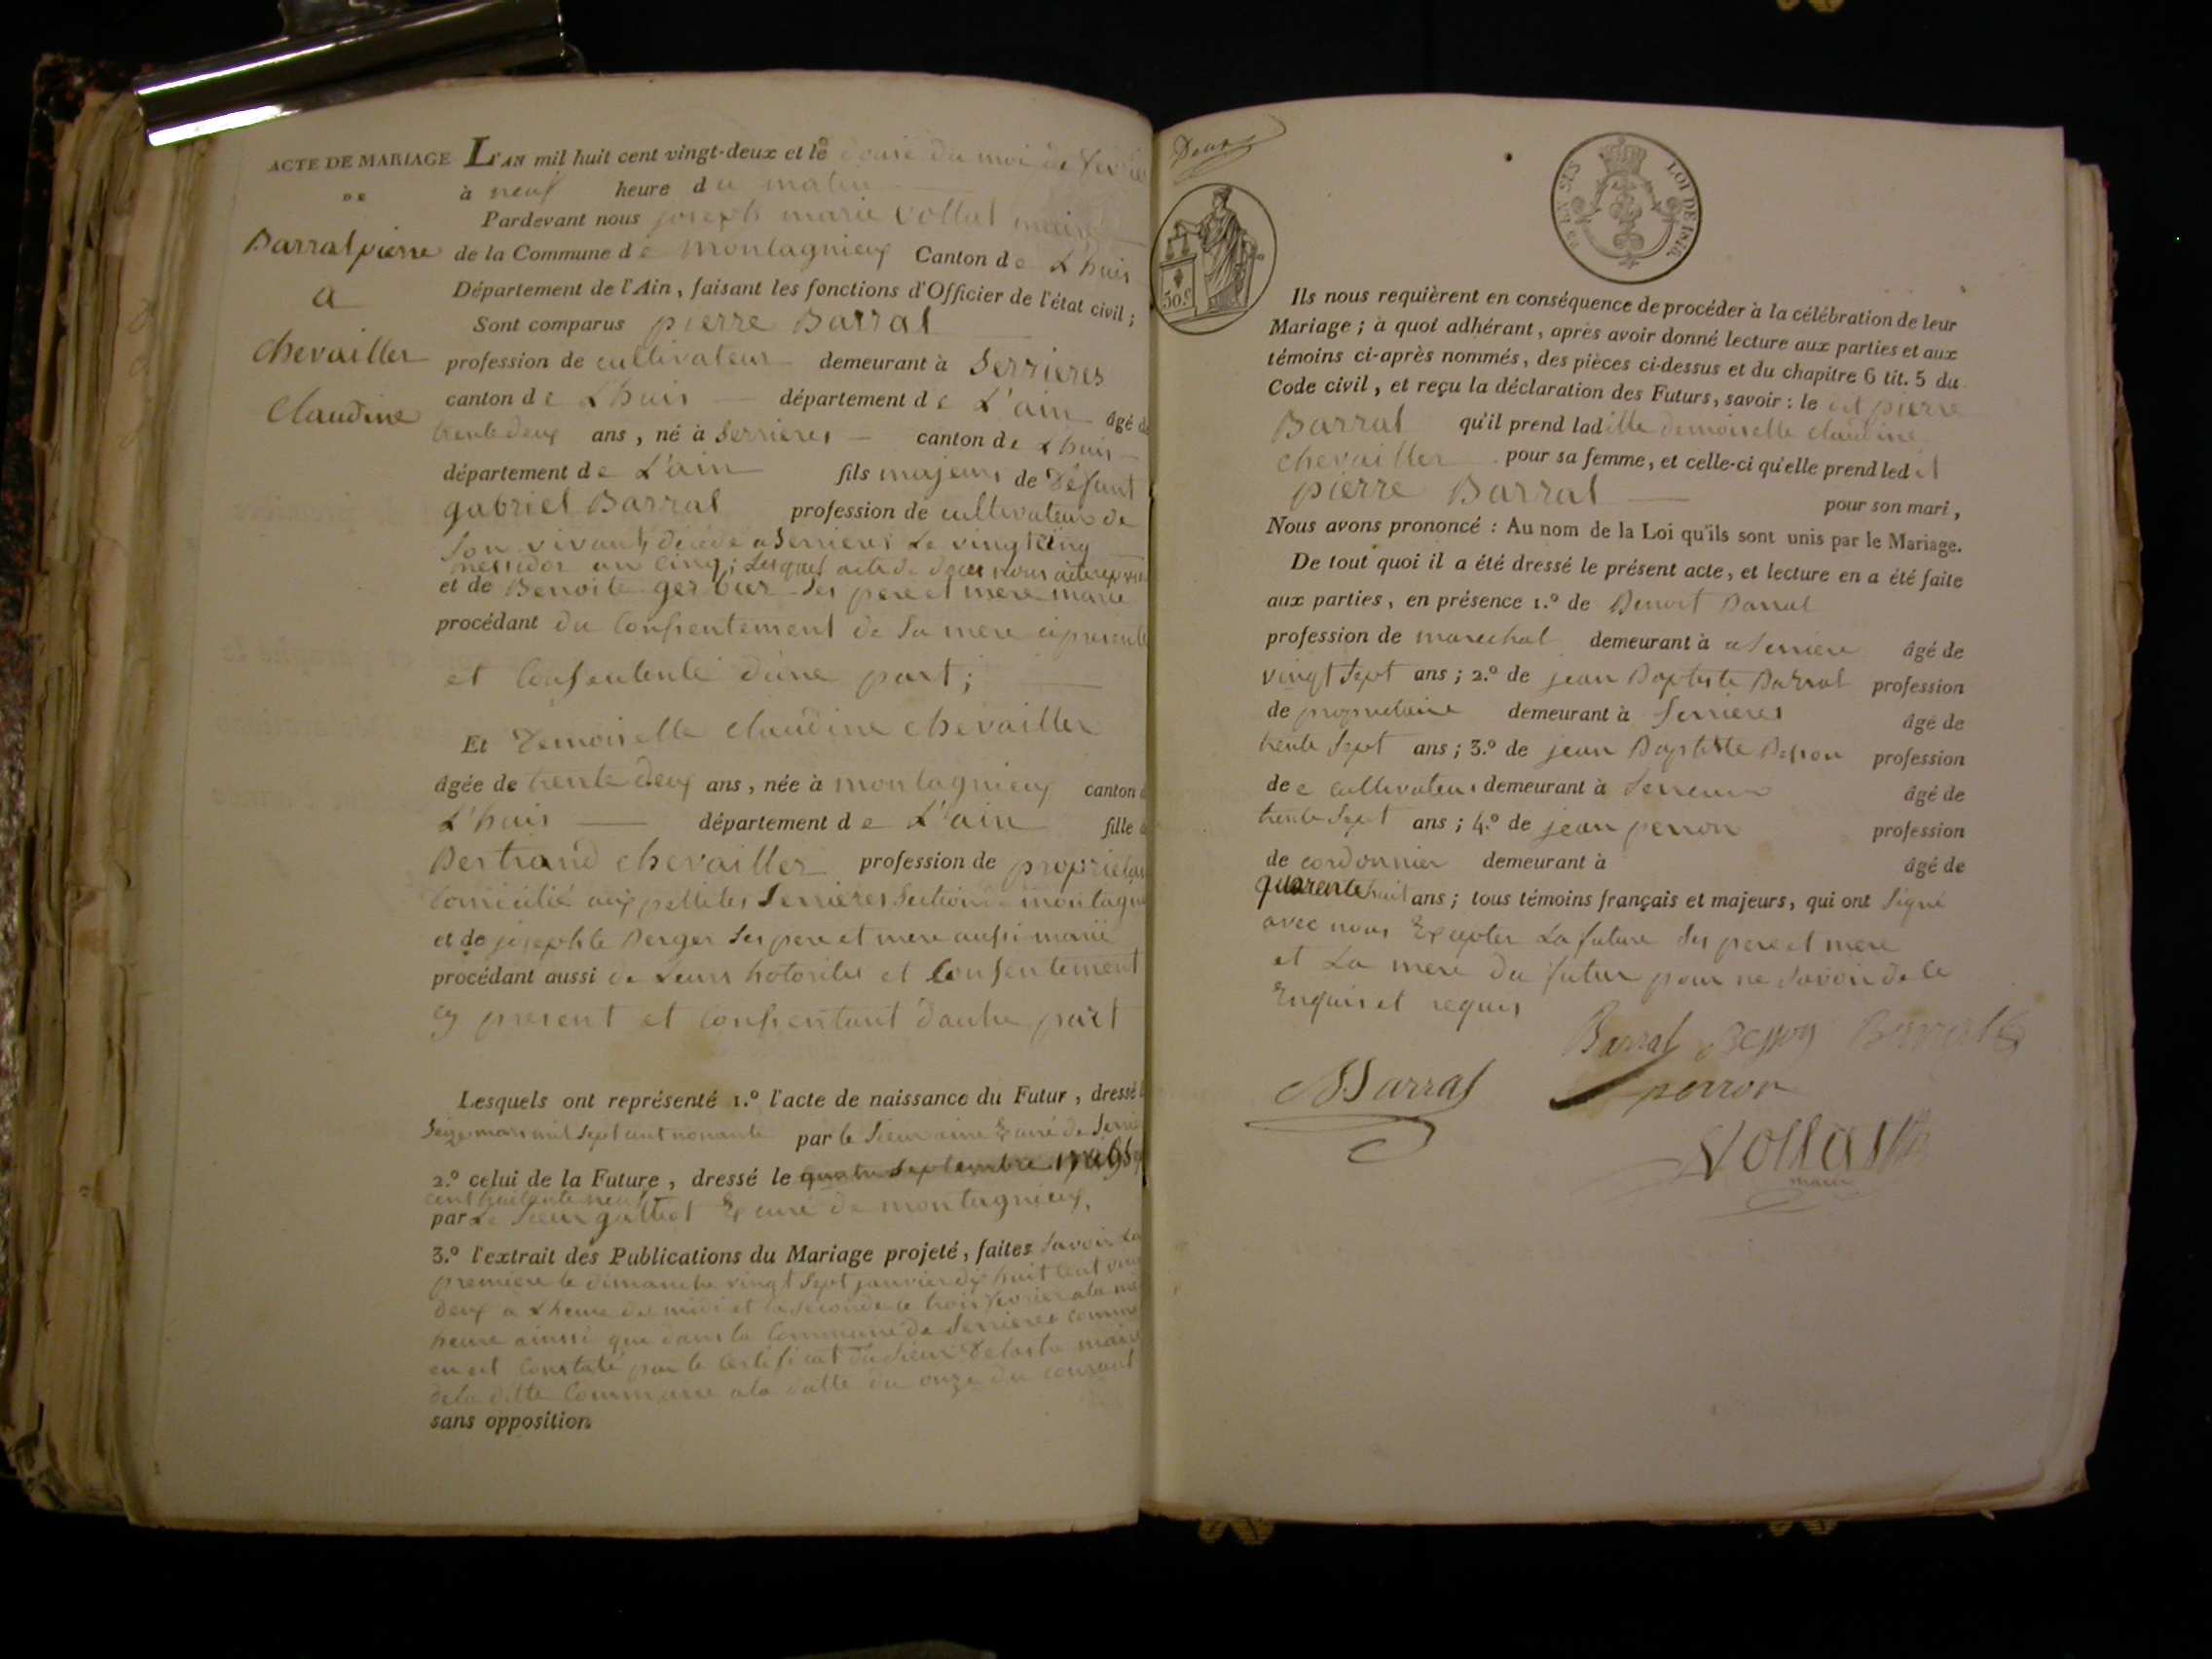 ACTE DE MARIAGE
DE
Barral pierre
a
chevailler
Claudine
L'AN mil huit cent vingt-deux et le douse du moi de fevrier
à neuf heure du matin
Pardevant nous joseph marie Vollat maire
de la Commune de montagnieux Canton de Lhuis
Département de l'Ain, faisant les fonctions d'Officier de l'état civil;
Sont comparus pierre Barral
profession de cultivateur demeurant à Serrieres
canton de Lhuis département de L'ain âgé de
trente deux ans, né à Serrieres canton de Lhuis
département de L'ain fils majeur de Défunt
gabriel Barral profession de cultivateur de
Son vivant, décédé a Serrieres Le vingt cinq
messidor an cinq;
et de Benoite gerbier Ses pere et mere marié
procédant du Consentement de Sa mere cy presente
et Consentente d'une part;
Et Demoiselle Claudine chevailler
âgée de trente deux ans, née à montagnieux canton
L'huis département de L'ain fille
Bertrand chevailler profession de
Domicilié aux pettites Serrieres Section de
et de josephte Berger Ses pere et mere aussi marié
procédant aussi de Leurs hotorites et Consentement
cy present et Consentant d'autre part
Lesquels ont représenté 1.º l'acte de naissance du Futur, dressé
Seize mars mil Sept cent nonante par le Sieur
2.º celui de la Future, dressé le quatre Septembre
cent huitante neuf
par Le Sieur curé de montagnieux,
3.º l'extrait des Publications du Mariage projeté, faites Savoir La
premiere le dimanche vingt Sept janvier dix huit Cent vingt
deux a L'heure de midi et la Seconde le trois fevrier a la
heure ainsi que dans la Commune de Serrieres comme
en est Constaté par le Certificat du Sieur maire
de la ditte Commune a la datte du onze du courant
sans opposition
Deux
30 C
LOI DE 1816
Ils nous requièrent en conséquence de procéder à la célébration de leur
Mariage; à quoi adhérant, après avoir donné lecture aux parties et aux
témoins ci-après nommés, des pièces ci-dessus et du chapitre 6 tit. 5 du
Code civil, et reçu la déclaration des Futurs, savoir: le dit pierre
Barral qu'il prend ladille demoiselle claudine
chevailler pour sa femme, et celle-ci qu'elle prend ledit
pierre Barral pour son mari,
Nous avons prononcé: Au nom de la Loi qu'ils sont unis par le Mariage.
De tout quoi il a été dressé le présent acte, et lecture en a été faite
aux parties, en présence 1.º de Benoit Barral
profession de marechal demeurant à a Serriere âgé de
vingt Sept ans; 2.º de jean Baptiste Barral profession
de proprietaire demeurant à Serrieres âgé de
trente Sept ans; 3.º de jean Baptiste Besson profession
de e cultivateur demeurant à âgé de
trente Sept ans; 4.º de jean perron profession
de cordonnier demeurant à âgé de
quarente huit ans; tous témoins français et majeurs, qui ont Signé
avec nous Excepter La future Ses pere et mere
et La mere du futur pour ne Savoir de ce
Enquis et requis
Barral Besson Barral
Barral perron
Vollat
maire